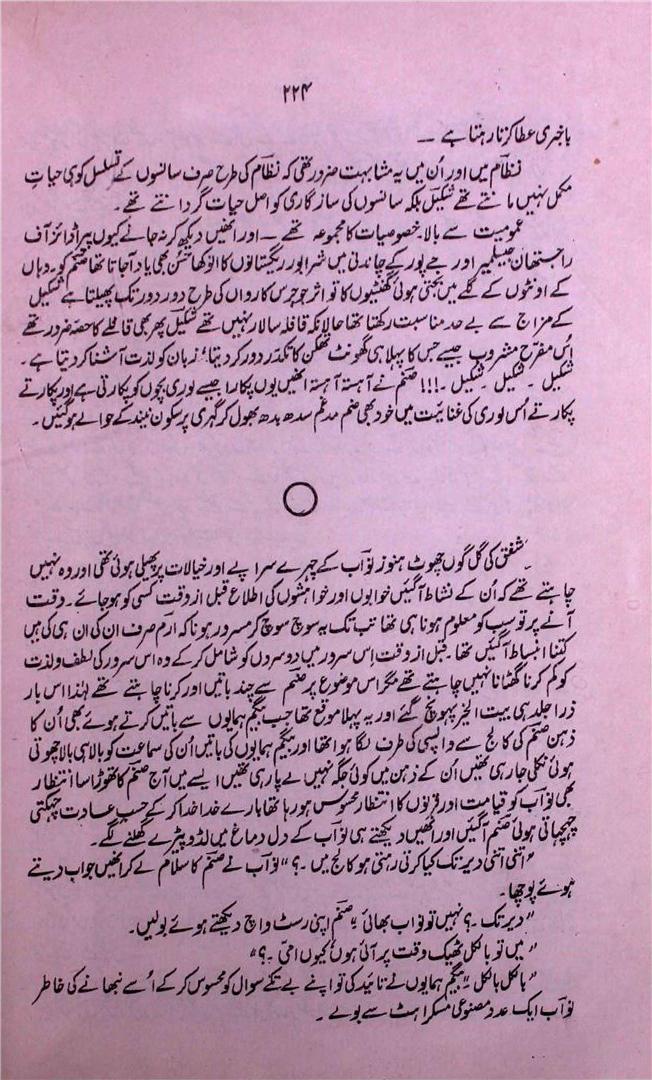 ۲۲۴
باخبری عطا کرتا رہتا ہے ۔
نظام میں اور اُن میں یہ مشابہت ضرور تھی کہ نظام کی طرح صرف سانسوں کے تسلسل کو ہی حیاتِ
مکمل نہیں مانتے تھے شکیل بلکہ سانسوں کی سازگاری کو اصل حیات گردانتے تھے ۔
عمومیت سے بالا خصوصیات کا مجموعہ تھے ۔ اور انھیں دیکھ کر نہ جانے کیوں پیراڈائز آف
راجستھان جیسلمیر اور جے پور کے چاندنی میں شرابور ریگستانوں کا انوکھا حُسن بھی یاد آجاتا تھا صنم کو ۔ وہاں
کے اونٹوں کے گلے میں بجتی ہوئی گھنٹیوں کا تواتر جو جرس کارواں کی طرح دور دور تک پھیلتا ہے شکیل
کے مزاج سے بے حد مناسبت رکھتا تھا حالانکہ قافلہ سالار نہیں تھے شکیل پھر بھی قافلے کا حصہ ضرور تھے
اُس مفرّح مشروب جیسے جس کا پہلا ہی گھونٹ تھکن کا تکدّر دور کر دیتا، زبان کو لذت آشنا کر دیتا ہے ۔
شکیل ۔ شکیل ۔ شکیل ۔!!! صنم نے آہستہ آہستہ انھیں یوں پکارا جیسے لوری بچوں کو پکارتی ہے اور پکارتے
پکارتے اُس لوری کی غنائیت میں خود بھی صنم مدغم سدھ بدھ بھول کر گہری پرسکون نیند کے حوالے ہو گئیں ۔
شفق کی گل گوں چھوٹ ہنوز نواب کے چہرے سراپے اور خیالات پر پھیلی ہوئی تھی اور وہ نہیں
چاہتے تھے کہ اُن کے نشاط آگیں خوابوں اور خواہشوں کی اطلاع قبل از وقت کسی کو ہو جائے ۔ وقت
آنے پر تو سب کو معلوم ہونا ہی تھا تب تک یہ سوچ سوچ کر مسرور ہونا کہ ارم صرف ان کی ان ہی کی ہیں
کتنا انبساط آگیں تھا ۔ قبل از وقت اِس سرور میں دوسروں کو شامل کر کے وہ اس سرور کی لطف و لذت
کو کم کرنا گھٹانا نہیں چاہتے تھے مگر اس موضوع پر صنم سے چند باتیں اور کرنا چاہتے تھے لہٰذا اس بار
ذرا جلد ہی بیت الخیر پہونچ گئے اور یہ پہلا موقع تھا جب بیگم ہمایوں سے باتیں کرتے ہوئے بھی اُن کا
ذہن صنم کی کالج سے واپسی کی طرف لگا ہوا تھا اور بیگم ہمایوں کی باتیں اُن کی سماعت کو بالا ہی بالا چھوتی
ہوئی نکلی جا رہی تھیں اُن کے ذہن میں کوئی جگہ نہیں لے پا رہی تھیں ایسے میں آج صنم کا تھوڑا سا انتظار
بھی نواب کو قیامت اور قرنوں کا انتظار محسوس ہو رہا تھا بارے خدا خدا کر کے حسبِ عادت چہکتی
چہچہاتی ہوئی صنم آ گئیں اور انھیں دیکھتے ہی نواب کے دل دماغ میں لڈو پیڑے گھلنے لگے ۔
”اتنی اتنی دیر تک کیا کرتی رہتی ہو کالج میں ۔؟“ نواب نے صنم کا سلام لے کر انھیں جواب دیتے
ہوئے پوچھا ۔
”دیر تک ۔؟ نہیں تو نواب بھائی“ صنم اپنی رسٹ واچ دیکھتے ہوئے بولیں ۔
”میں تو بالکل ٹھیک وقت پر آئی ہوں کیوں امّی ۔؟“
”بالکل بالکل“ بیگم ہمایوں نے تائید کی تو اپنے بے تکے سوال کو محسوس کر کے اُسے نبھانے کی خاطر
نواب ایک عدد مصنوعی مسکراہٹ سے بولے ۔